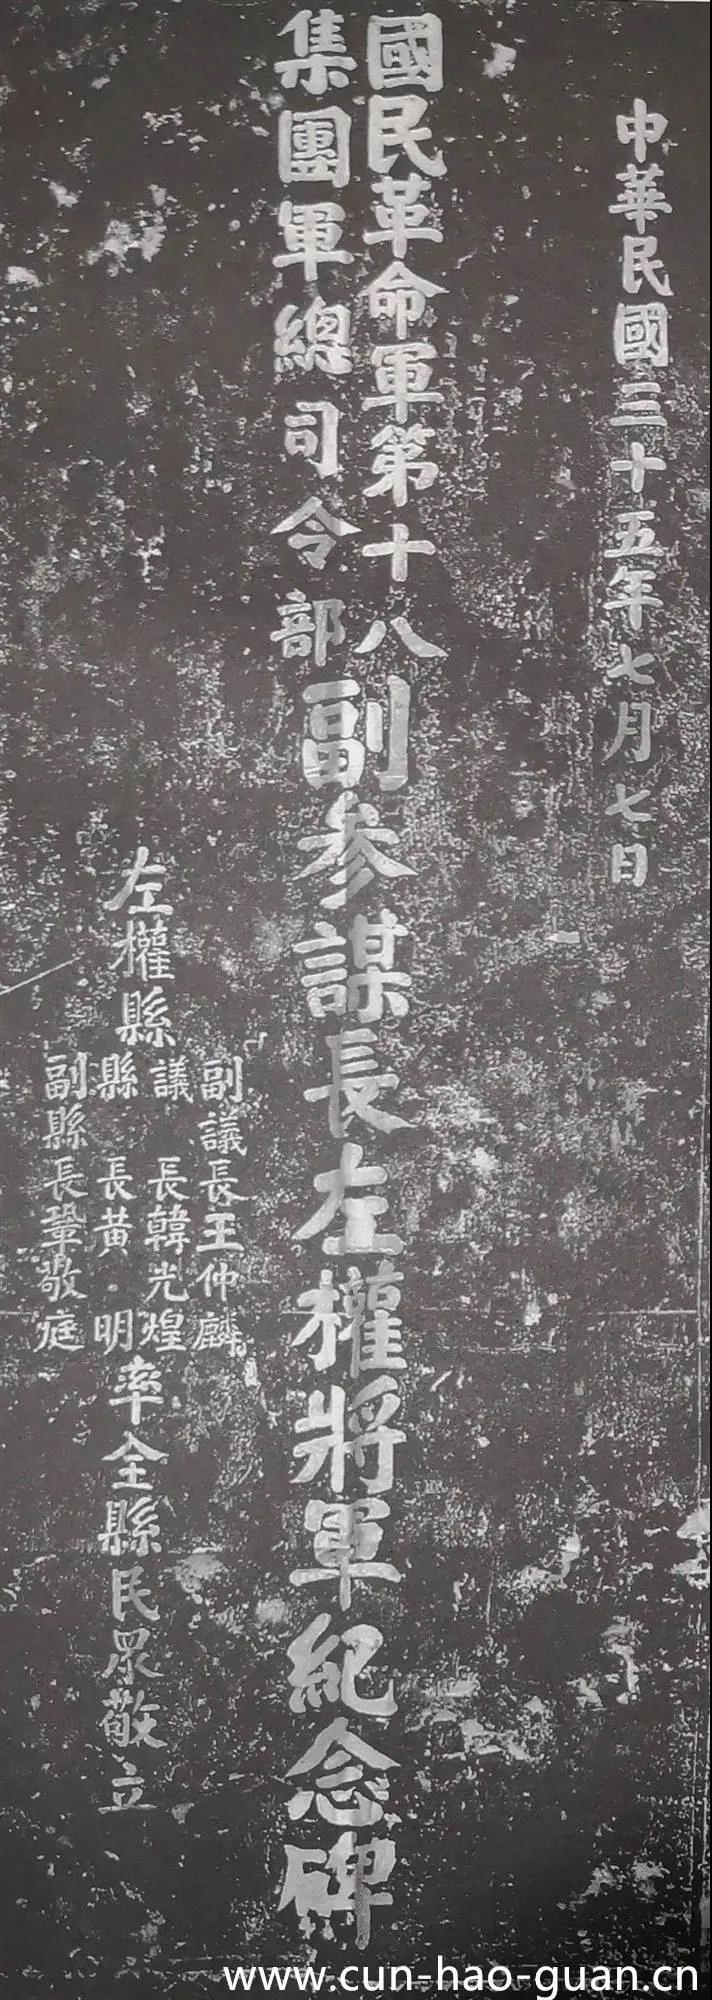 中華民國三十五年七月七日
國民革命軍第十八
集團軍總司令部
副參謀長左權將軍紀念碑
左權縣
副議長王仲麟
議長韓光煌
縣長黃明
副縣長鞏敬庭
率全縣民眾敬立
www.cun-hao-guan.cn